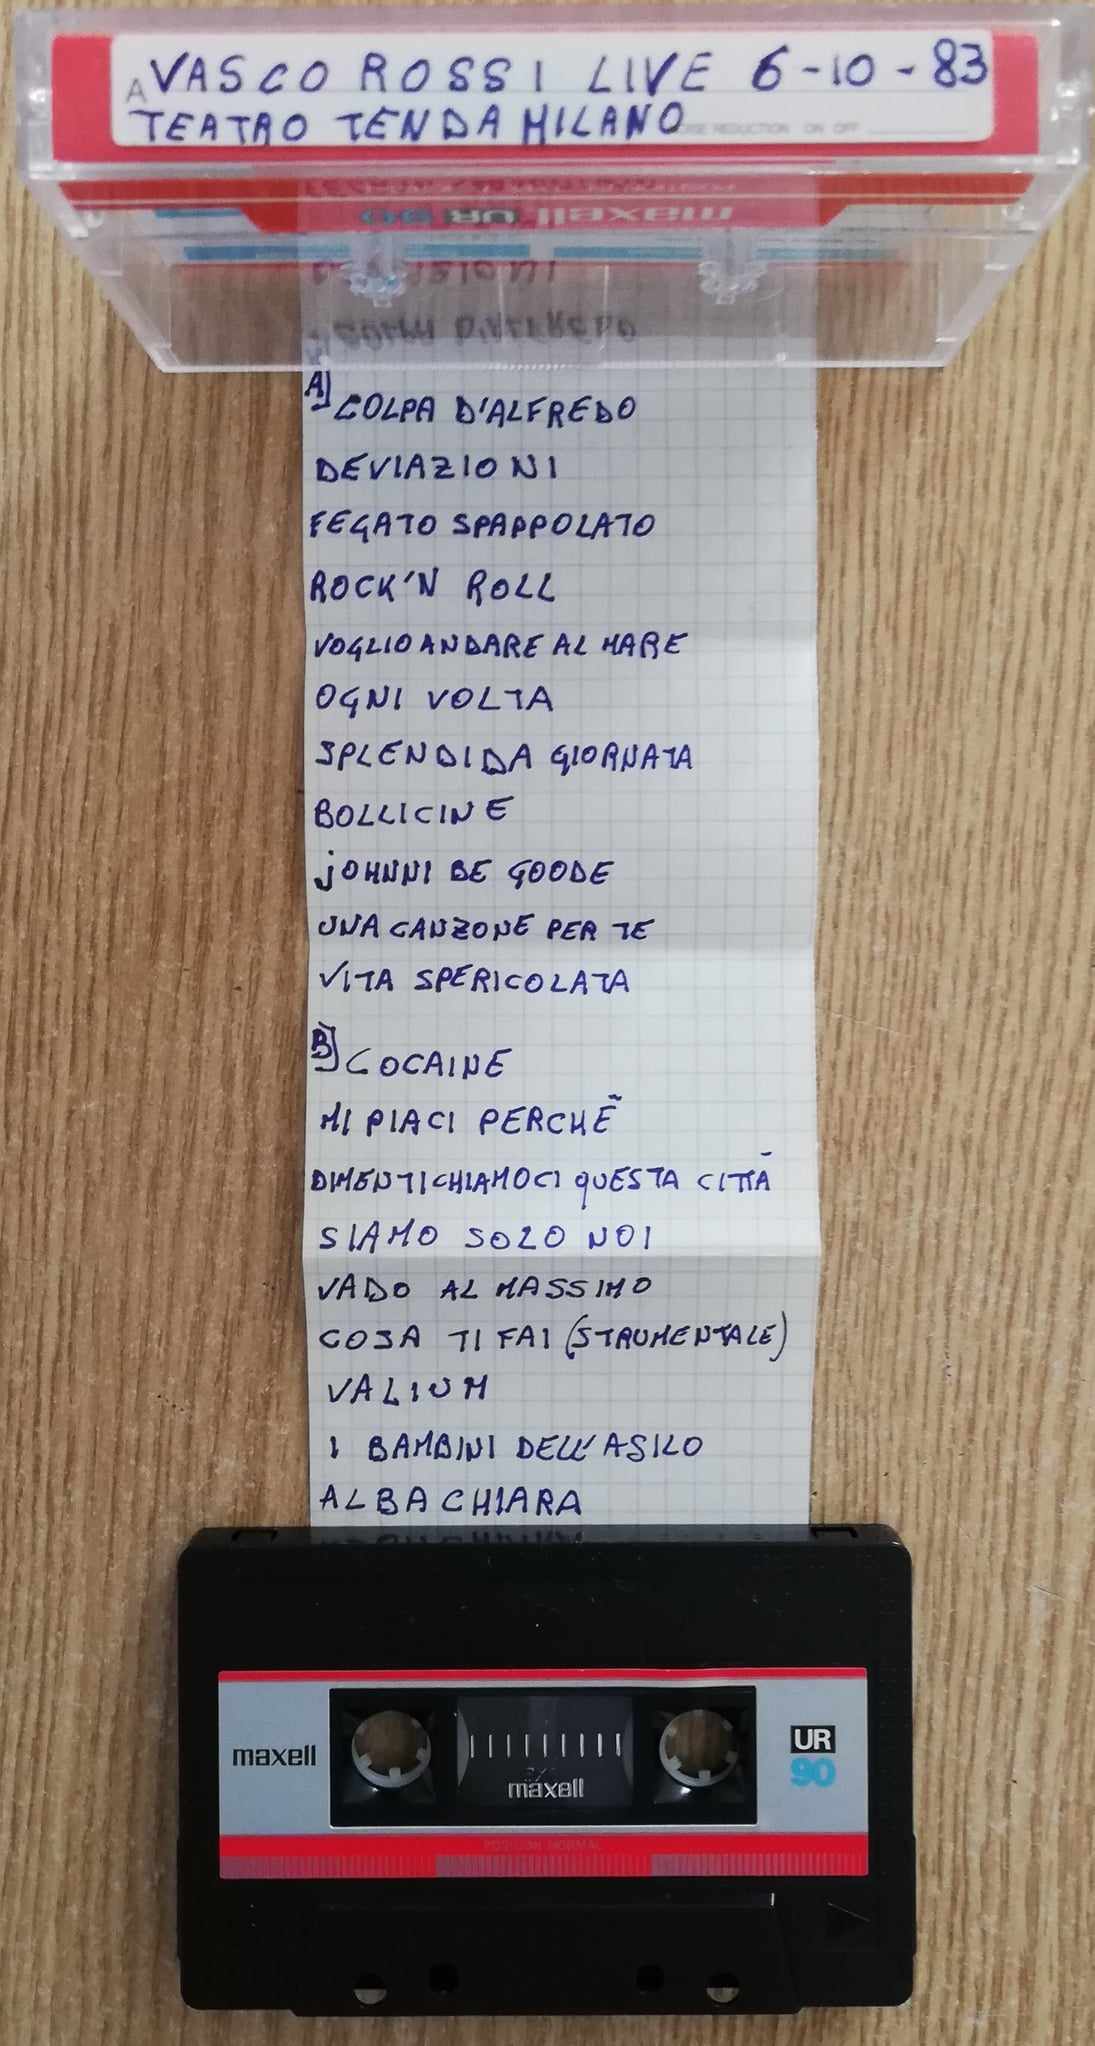 A VASCO ROSSI LIVE 6-10-83
TEATRO TENDA MILANO
NOISE REDUCTION ON OFF
maxell UR 90
A] COLPA D'ALFREDO
DEVIAZIONI
FEGATO SPAPPOLATO
ROCK'N ROLL
VOGLIO ANDARE AL MARE
OGNI VOLTA
SPLENDIDA GIORNATA
BOLLICINE
jOHNNI BE GOODE
UNA CANZONE PER TE
VITA SPERICOLATA
B] COCAINE
MI PIACI PERCHẼ
DIMENTICHIAMOCI QUESTA CITTĀ
SIAMO SOLO NOI
VADO AL MASSIMO
COSA TI FAI (STRUMENTALE)
VALIUM
I BAMBINI DELL'ASILO
ALBA CHIARA
maxell
maxell
UR
90
POSITION NORMAL